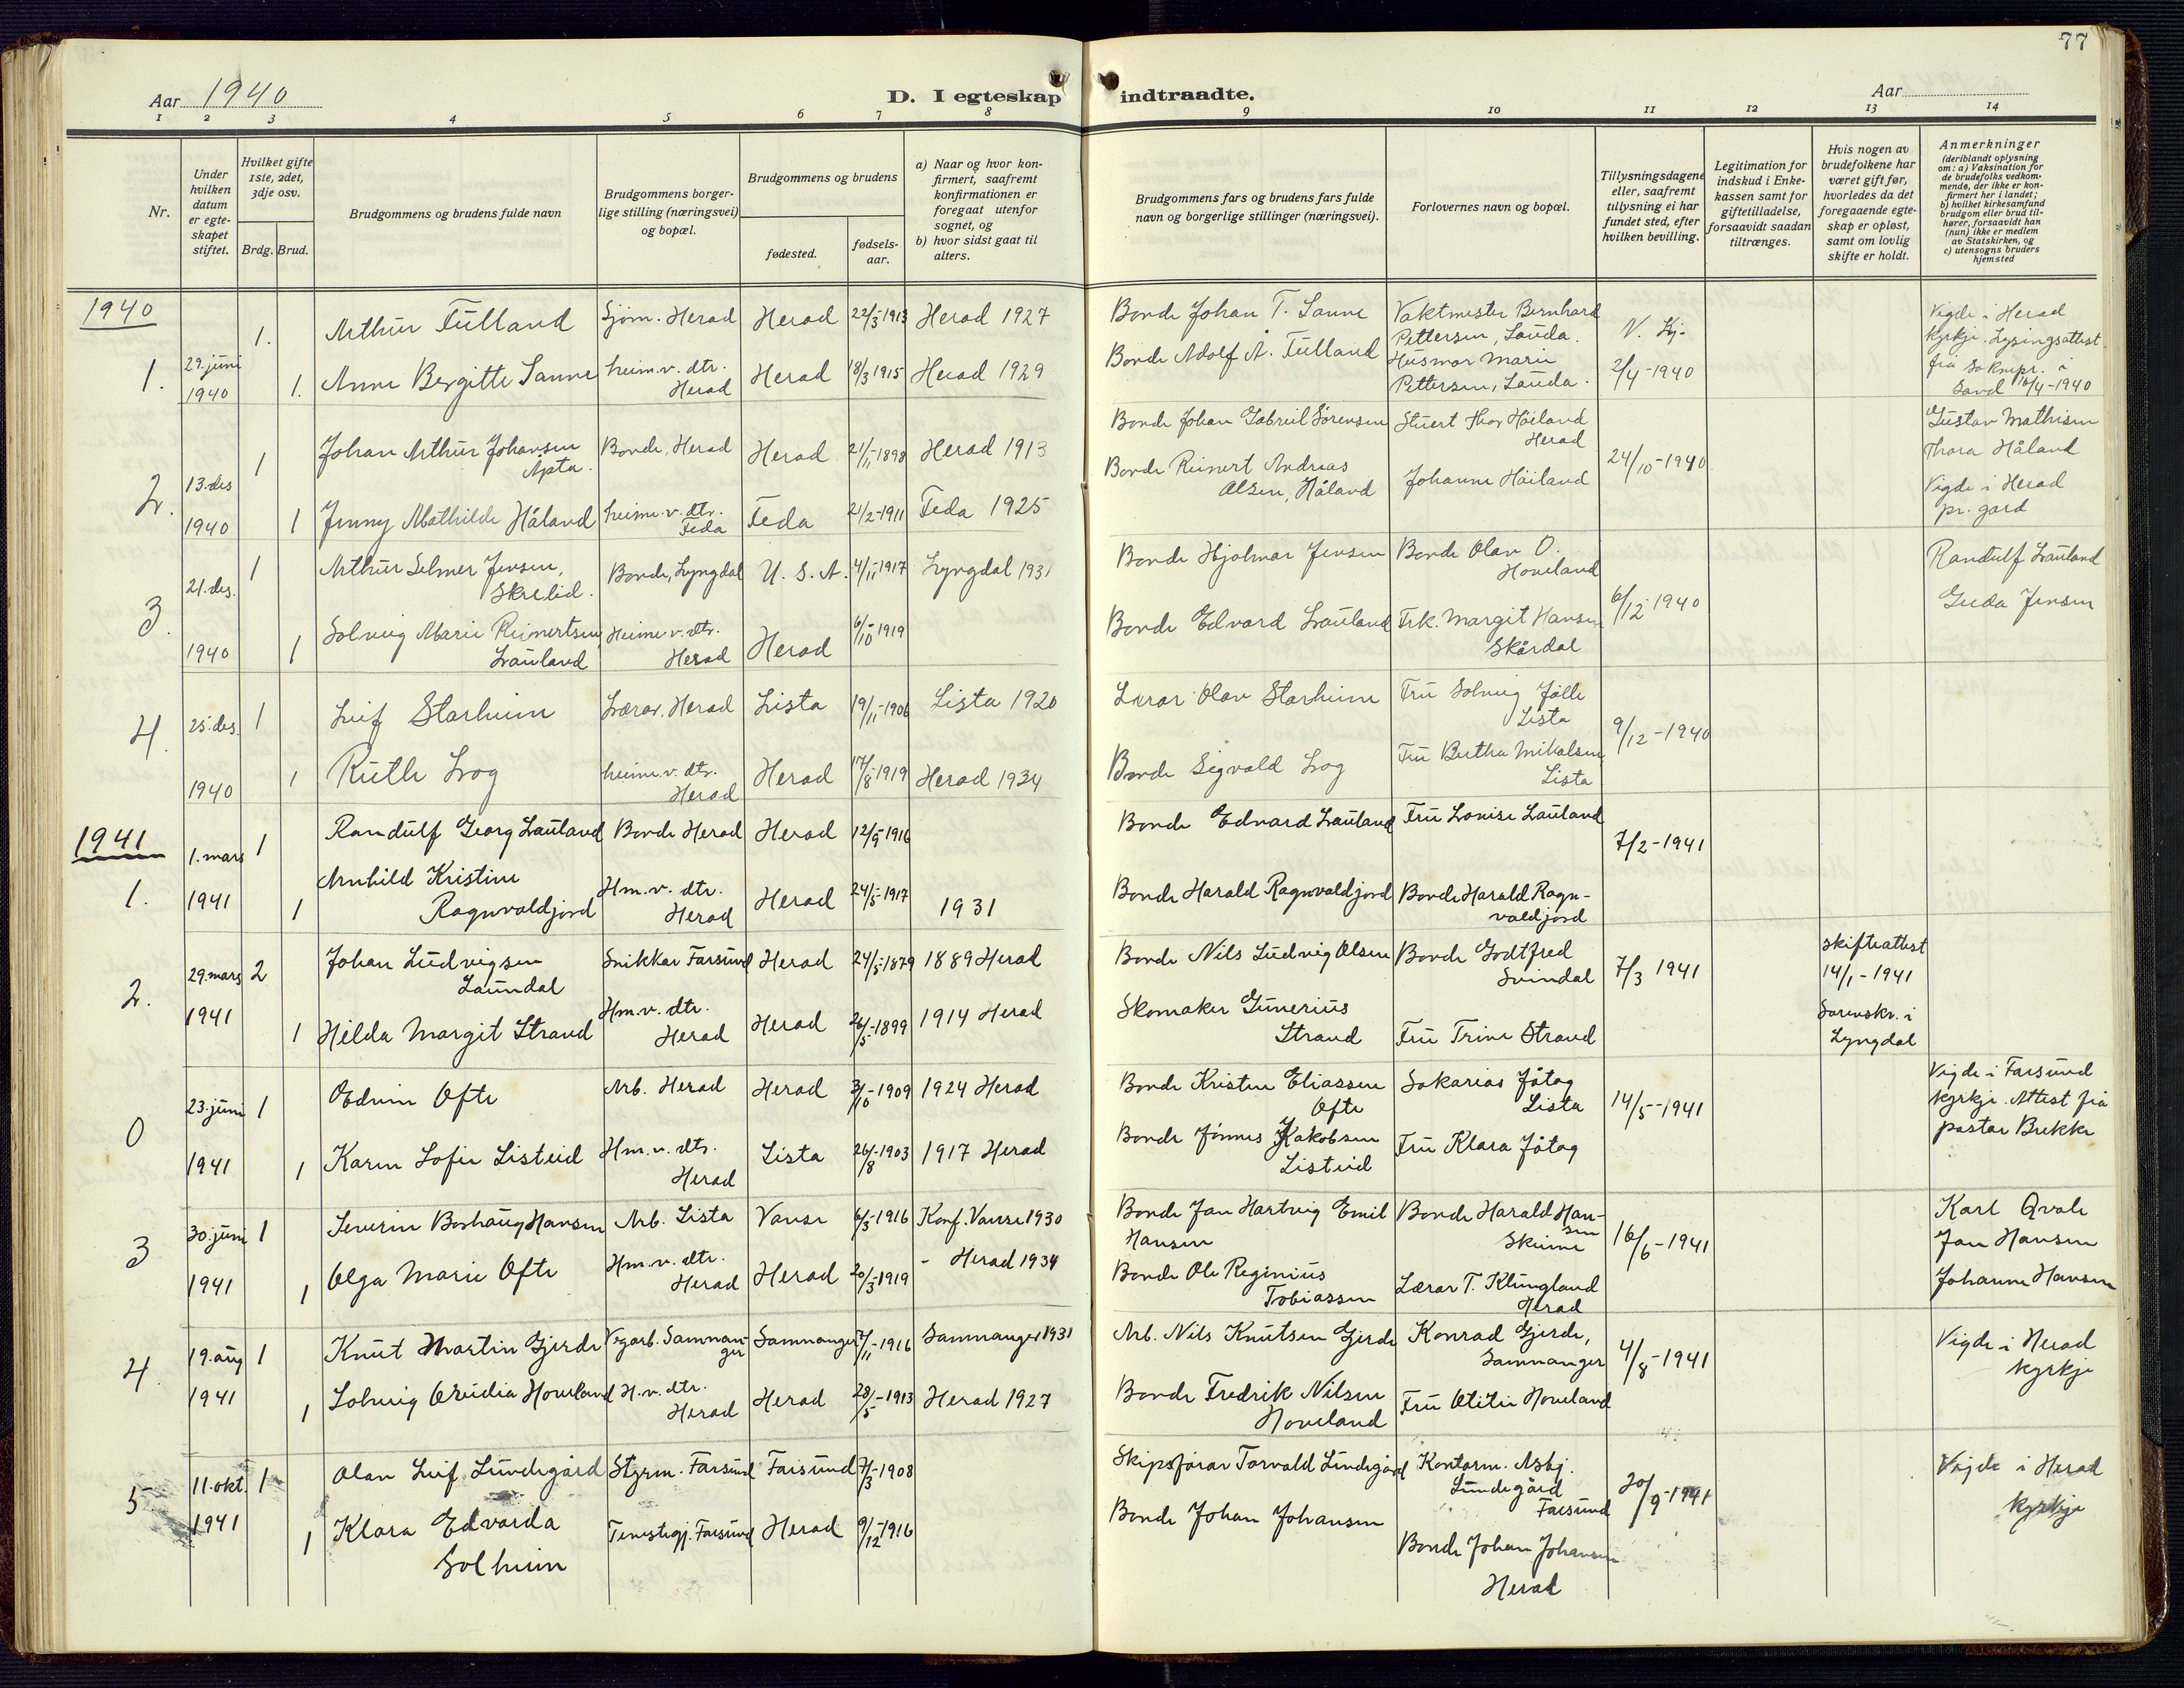 77
Aar 1940
D. I egteskap indtraadte.
Aar
1 2 3 4 5 6 7 8 9 10 11 12 13 14
Nr.
Under hvilken datum er egteskapet stiftet.
Hvilket gifte 1ste, 2det, 3dje osv.
Brdg. Brud.
Brudgommens og brudens fulde navn
Brudgommens borgerlige stilling (næringsvei) og bopæl.
Brudgommens og brudens
fødested.
fødselsaar.
a) Naar og hvor konfirmert, saafremt konfirmationen er foregaat utenfor sognet, og
b) hvor sidst gaat til alters.
Brudgommens fars og brudens fars fulde navn og borgerlige stillinger (næringsvei).
Forlovernes navn og bopæl.
Tillysningsdagene eller, saafremt tillysning ei har fundet sted, efter hvilken bevilling.
Legitimation for indskud i Enkekassen samt for giftetilladelse, forsaavidt saadan tiltrænges.
Hvis nogen av brudefolkene har været gift før, hvorledes da det foregaaende egteskap er opløst, samt om lovlig skifte er holdt.
Anmerkninger
(deriblandt oplysning om: a) Vaksination for de brudefolks vedkommende, der ikke er konfirmert her i landet; b) hvilket kirkesamfund brudgom eller brud tilhører, forsaavidt han (hun) ikke er medlem av Statskirken, og c) utensogns bruders hjemsted
1940
1. 29. juni 1940
1. Arthur Tulland Sjøm. Herad Herad 22/3 1913 Herad 1927
1. Anne Bergitte Sanne heim.v. dtr. Herad Herad 18/3 1915 Herad 1929
Bonde Johan T. Sanne
Bonde Adolf A. Tulland
Vaktmester Bernhard Pettersen, Lauda.
Husmor Marie Pettersen, Lauda.
N. Kj. 2/4-1940
Vigde i Herad kyrkje. Lysingsattest frå soknepr. i Sand 16/4-1940
2. 13. des 1940
1 Johan Arthur Johansen Apta. Bonde, Herad Herad 21/11-1898 Herad 1913
1 Jenny Mathilde Håland heime.v. dtr. Feda Feda 21/2-1911 Feda 1925
Bonde Johan Gabriel Sørensen
Bonde Reinert Andreas Olsen, Håland
Stuert Thor Høiland Herad
Johanne Høiland
24/10-1940
Gustav Mathisen
Thora Håland
Vigde i Herad pr. gard
3. 21. des. 1940
1 Arthur Selmer Jensen, Skrelid. Bonde, Lyngdal U. S. A. 4/11 1917 Lyngdal 1931
1 Solveig Marie Reinertsen Lauland Heime.v. dtr. Herad Herad 6/10 1919
Bonde Hjalmar Jensen
Bonde Edvard Lauland
Bonde Olav O. Hoveland
Frk. Margit Hansen Skårdal
6/12 1940
Randulf Lauland
Jensen
4. 25. des. 1940
1 Leif Starheim Lærar. Herad Lista 19/11-1906 Lista 1920
1 Ruth Log heime.v. dtr. Herad Herad 17/8-1919 Herad 1934
Lærar Olav Starheim
Bonde Sigvald Log
Fru Solveig Jølle Lista
Fru Bertha Mikalsen Lista
9/12-1940
1941
1. 1. mars 1941
1 Randulf Georg Lauland Bonde Herad Herad 12/9-1916
1 Arnhild Kristine Ragnvaldjord Hm.v. dtr. Herad Herad 24/5-1917 1931
Bonde Edvard Lauland
Bonde Harald Ragnvaldjord
Fru Lovise Lauland
Bonde Harald Ragnvaldjord
7/2-1941
2. 29. mars 1941
2 Johan Ludvigsen Laundal Snikkar Farsund Herad 24/5-1879 1889 Herad
1 Hilda Margit Strand Hm.v. dtr. Herad Herad 26/5-1899 1914 Herad
Bonde Nils Ludvig Olsen
Skomaker Gunerius Strand
Bonde Godtfred Svindal
Fru Trine Strand
7/3 1941
Skifteattest 14/1-1941
Sorenskr. i Lyngdal
0 23. juni 1941
1 Edvin Ofte Arb. Herad Herad 3/10-1909 1924 Herad
1 Karen Sofie Listeid Hm.v. dtr. Herad Lista 26/8-1903 1917 Herad
Bonde Kristen Eliassen Ofte
Bonde Jonnes Jakobsen Listeid
Sakarias Jåtog Lista
Fru Klara Jåtog
14/5-1941
Vigde i Farsund kyrkje. Attest frå pastor Brekke
3 30. juni 1941
1 Severin Borhaug Hansen Arb. Lista Vanse 6/3-1916 Konf. Vanse 1930
1 Olga Marie Ofte Hm.v. dtr. Herad Herad 20/3-1919 - Herad 1934
Bonde Jan Hartvig Emil Hansen
Bonde Ole Reginius Tobiassen
Bonde Harald Hansen Skeime
Lærar T. Klungland Herad
16/6-1941
Karl Qvale
Jan Hansen
Johanne Hansen
4. 19. aug 1941
1 Knut Martin Gjerde Vegarb. Samnanger Samnanger 7/11-1916 Samnanger 1931
1 Solveig Ovidia Hoveland H.v. dtr. Herad Herad 28/5-1913 Herad 1927
Arb. Nils Knutsen Gjerde
Bonde Fredrik Nilsen Hoveland
Konrad Gjerde, Samnanger
Fru Otitie Hoveland
4/8-1941
Vigde i Herad kyrkje
5 11. okt. 1941
1 Olav Leif Lundegård Styrm. Farsund Farsund 7/3-1908
1 Klara Edvarda Solheim Tenestegj. Farsund Herad 9/12-1916
Skipsførar Torvald Lundegård
Bonde Johan Johansen
Kontorm. Asbj. Lundegård Farsund
Bonde Johan Johansen Herad
20/9-1941
Vigde i Herad kyrkje